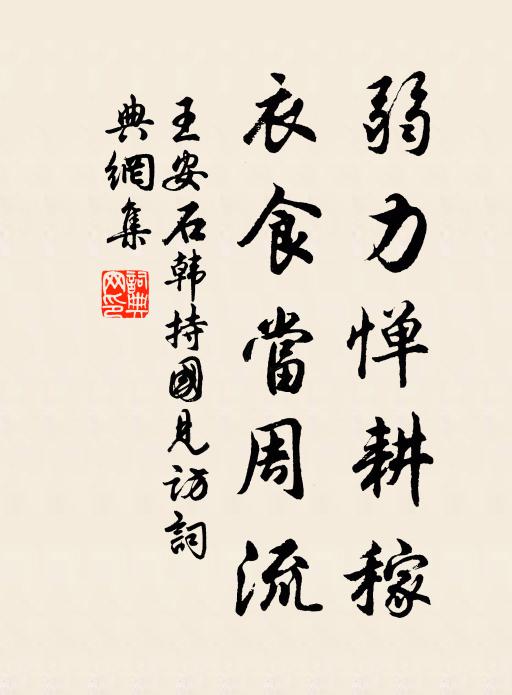 弱力惮耕稼
衣食當周流
王安石韩持國見訪詞
典網集
詞典網印